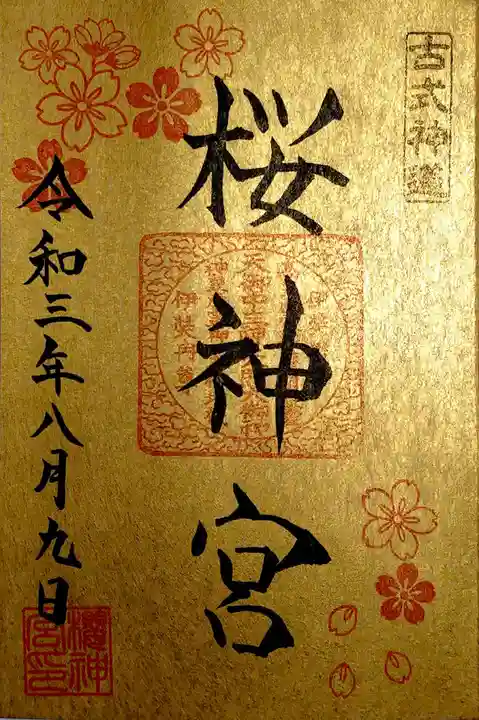 古式神道
桜神宮
令和三年八月九日
櫻神宮印